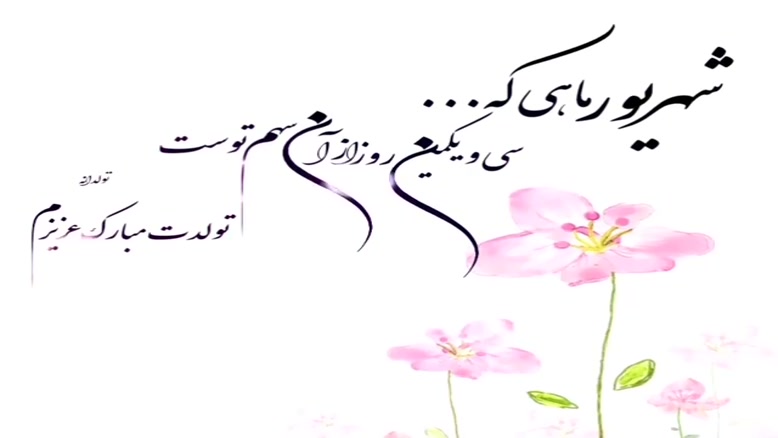 شهریور ماهی که...
سی و یکمین روز از آن سهم توست
تولدانه
تولدت مبارک عزیزم